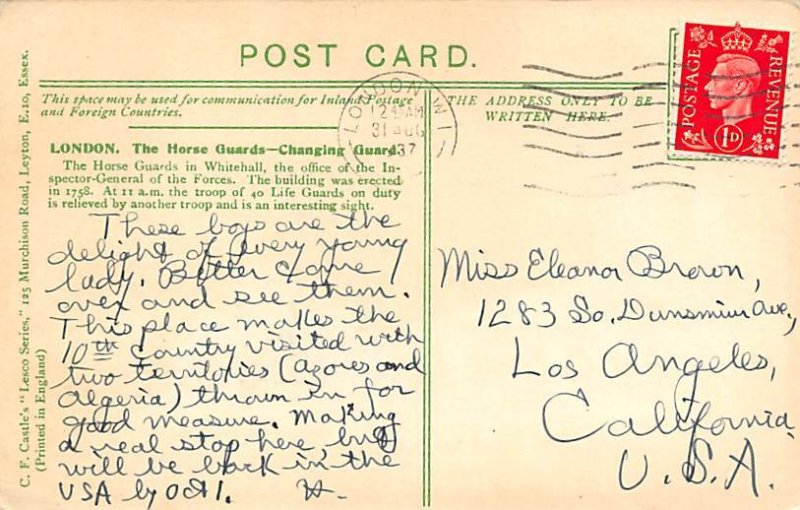 POST CARD.
This space may be used for communication for Inland Postage
and Foreign Countries.
THE ADDRESS ONLY TO BE
WRITTEN HERE.
LONDON W1
12 AM
31 AUG
37
POSTAGE
REVENUE
1D
LONDON. The Horse Guards—Changing Guard.
The Horse Guards in Whitehall, the office of the In-
spector-General of the Forces. The building was erected
in 1758. At 11 a.m. the troop of 40 Life Guards on duty
is relieved by another troop and is an interesting sight.
These boys are the
delight of every young
lady. Better come
over and see them.
This place makes the
10th country visited with
two territories (Azores and
Algeria) thrown in for
good measure. Making
a real stop here, but
will be back in the
USA by Oct 1. H.
Miss Eleanor Brown,
1283 So. Dunsmuir Ave.,
Los Angeles,
California
U.S.A.
C. F. Castle's "Lesco Series," 125 Murchison Road, Leyton, E.10, Essex.
(Printed in England)